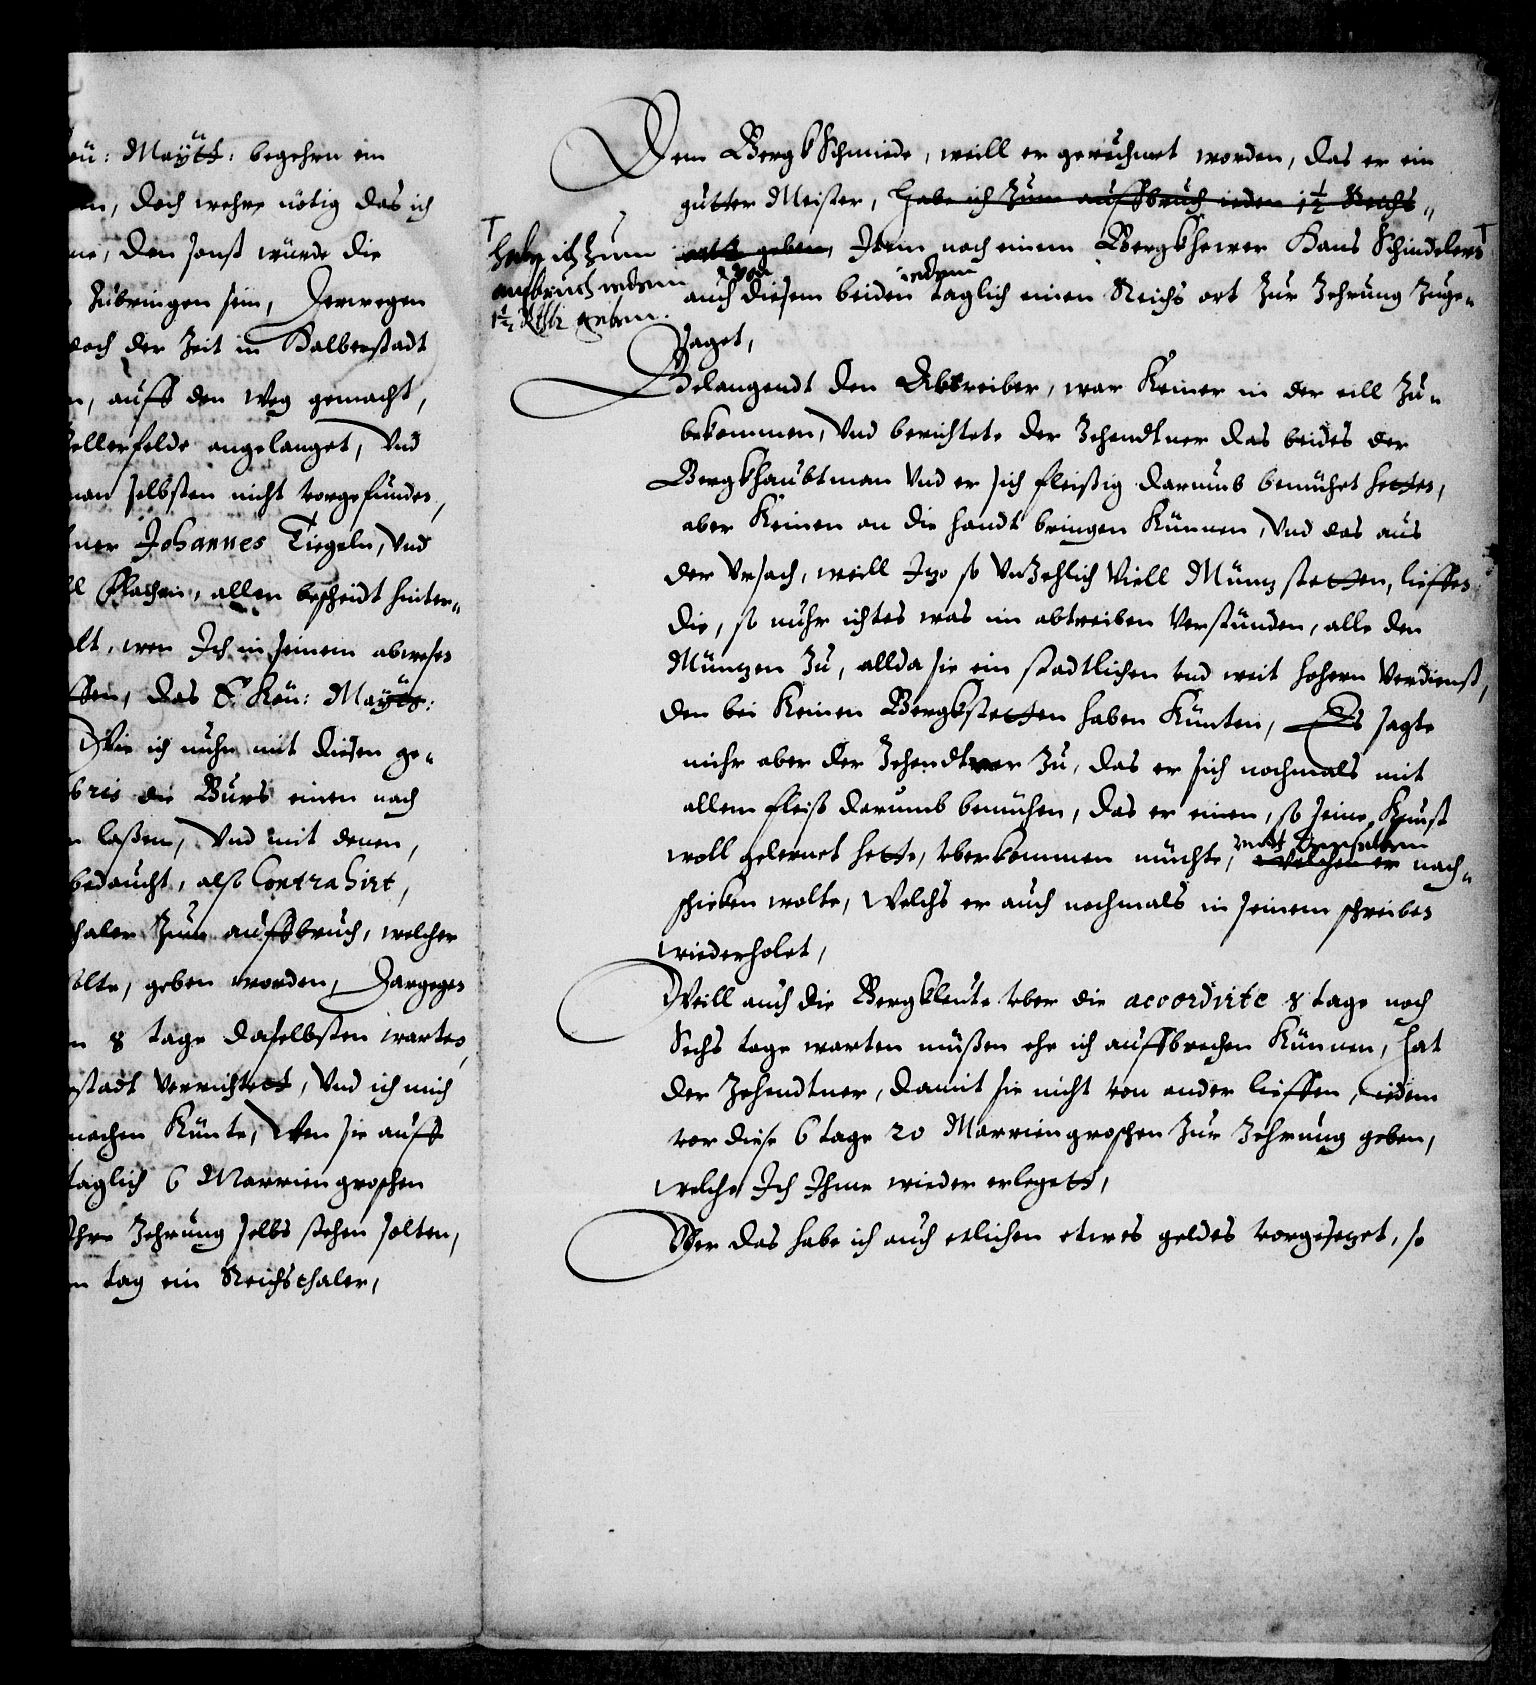 Kön: Maÿtt: begehrn ein
en, doch wehre nötig das ich
me, den sonst würde die
zubringen sein, Derwegen
doch der Zeit in Halberstadt
n, auff den weg gemacht,
Zellerfelde angelanget, Vnd
man selbsten nicht vorgefunden,
tner Johannes Tiegeln, Vnd
ll Flachein, allen bescheidt hinter¬
lt, wen Ich in seinem abwesen
ffen, das E. Kön: Maÿtt:
Wie ich nuhn mit diesen ge¬
bris die Burs einen nach
n laßen, Vnd mit denen,
bedaucht, also Contrahirt,
thaler Zum auffbruch, welcher
solte, geben worden, Dargegen
n 8 tage daselbsten warten,
stadt Verrichtett, Vnd ich mich
machen Künte, Wen sie auff
taglich 6 Marriengroschen
Ihre Zehrung selbs stehen solten,
n tag ein Reichsthaler,
Dem BergkSchmiede, weill er gerühmet worden, das er ein
gutter Meister, habe ich Zum auffbruch ieden 1½ Reichs¬
ortt geben, Item noch einem Bergkhewer Hans Schindelers
habe ich Zum
aufbruch iedem
1½ Rthlr geben.
auch diesem beiden iedem taglich einen Reichs ort Zur Zehrung Zuge¬
saget,
Belangendt den Abtreiber, war Keiner in der eill Zu¬
bekommen, Vnd berichtete der Zehendtner das beides der
Bergkhaubtman Vnd er sich fleißig darumb bemühet hetten,
aber Keinen an die handt bringen Künnen, Vnd das aus
der Vrsach, weill Izo so Vnzehlich Viell Münzstetten, lieffen
die, so nuhr ichtes was im abtreiben Verstünden, alle den
Müntzen Zu, allda sie ein stadtlichen vnd weit hohern Verdienst,
den bei Keinen Bergkstetten haben Künten, Es sagte
mihr aber der Zehendtner Zu, das er sich nochmals mit
allem fleiß darumb bemühen, das er einen, so seine Kunst
woll gelernet hette, vberkommen müchte, vndt denselben welchen er nach¬
schicken wolte, Welchs er auch nochmals in seinem schreiben
wiederholet,
Weill auch die Bergkleute vber die accordirte 8 tage noch
Sechs tage warten müßen ehe ich auffbrechen Künnen, hat
der Zehendtner, damit sie nicht von ander lieffen, iedem
vor diese 6 tage 20 Marriengroschen Zur Zehrung geben,
welche Ich Ihme wieder erlegett,
Vber das habe ich auch etlichen etwas geldes vorgesezet, so